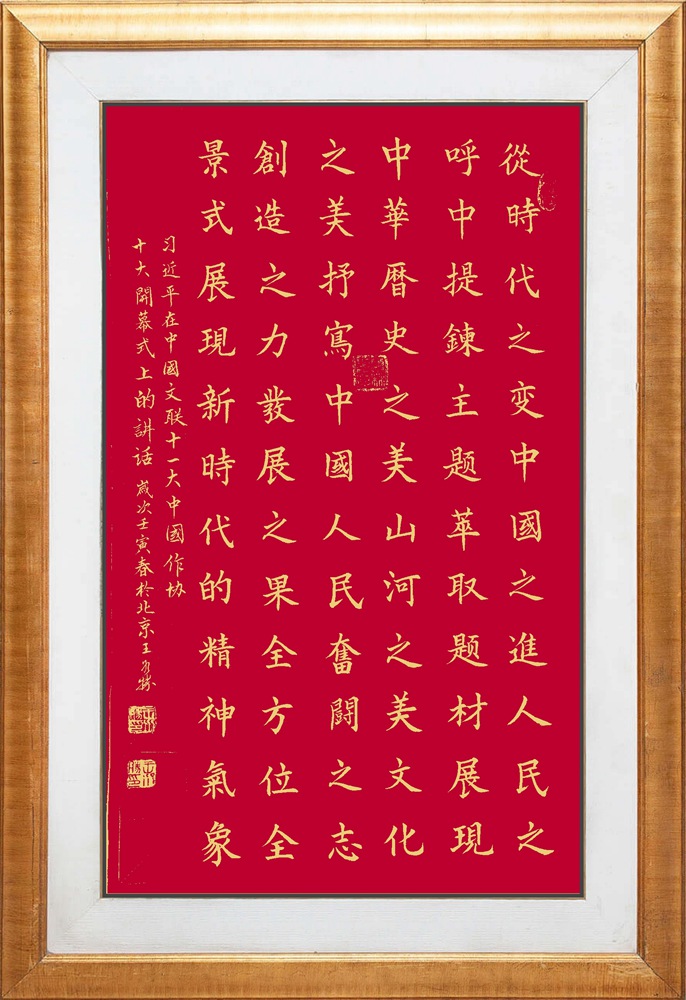 從時代之变中國之進人民之
呼中提鍊主题萃取题材展現
中華暦史之美山河之美文化
之美抒寫中國人民奮闘之志
創造之力發展之果全方位全
景式展現新時代的精神氣象
习近平在中國文联十一大中國作协
十大開幕式上的讲话 歲次壬寅春於北京王